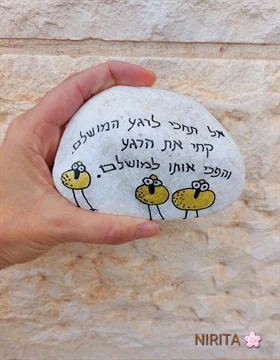 אל תחכי לרגע המושלם.
קחי את הרגע
והפכי אותו למושלם.
NIRITA🌸